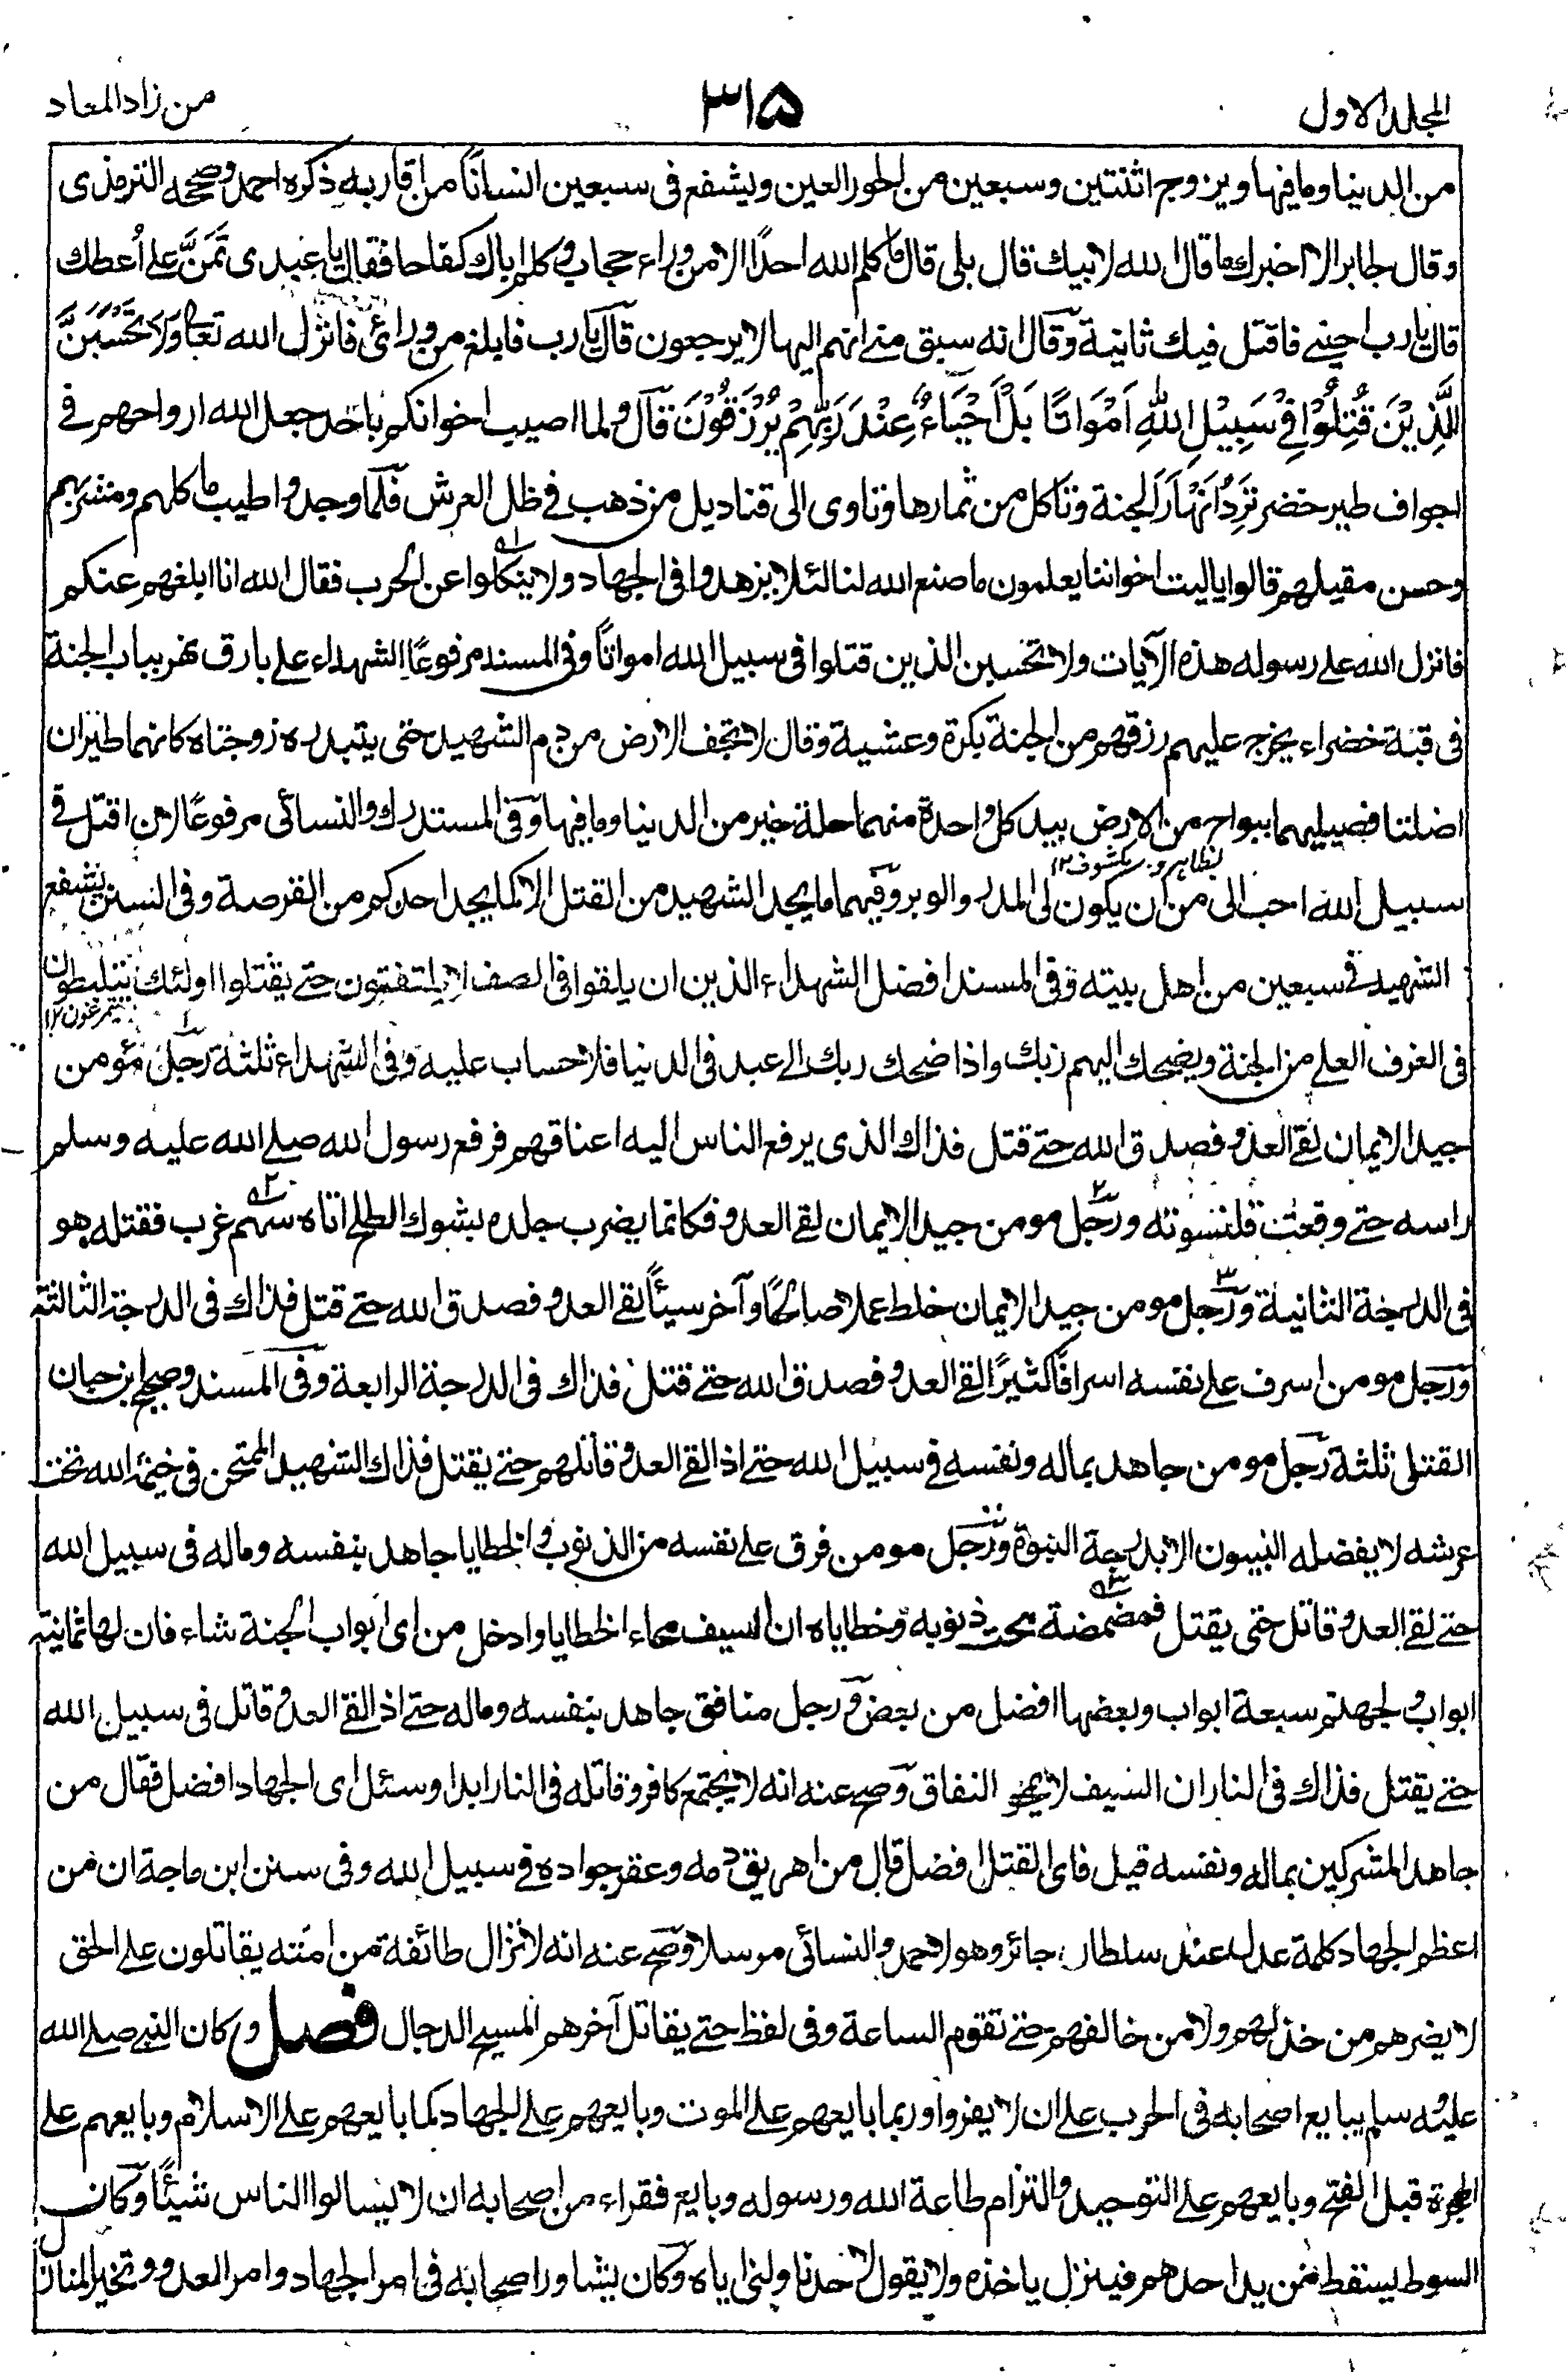 المجلد الاول
٣١۵
من زاد المعاد
من الدنيا وما فيها ويزوج اثنتين وسبعين من الحور العين ويشفع فى سبعين انسانًا من اقاربه ذكره احمد وصححه الترمذى
وقال لجابر الا اخبرك ما قال الله لابيك قال بلى قال ما كلم الله احدًا الا من وراء حجاب وكلم اباك كفاحا فقال يا عبدى تَمَنَّ على اُعطك
قال يا رب احينى فاقتل فيك ثانية وقال انه سبق منى انهم اليها لا يرجعون قال يا رب فابلغ من ورائى فانزل الله تعالى وَلَا تَحْسَبَنَّ
الَّذِيْنَ قُتِلُوْا فِىْ سَبِيْلِ اللهِ اَمْوَاتًا بَلْ اَحْيَاءٌ عِنْدَ رَبِّهِمْ يُرْزَقُوْنَ قال ولما اصيب اخوانكم باحد جعل الله ارواحهم فى
اجواف طير خضر تَرِدُ اَنْهَارَ الجنة وتاكل من ثمارها وتاوى الى قناديل من ذهب فى ظل العرش فلما وجدوا طيب ماكلهم ومشربهم
وحسن مقيلهم قالوا ياليت اخواننا يعلمون ما صنع الله لنا لئلا يزهدوا فى الجهاد ولا ينكلوا عن الحرب فقال الله انا ابلغهم عنكم
فانزل الله على رسوله هذه الآيات ولا تحسبن الذين قتلوا فى سبيل الله امواتًا وفى المسند مرفوعًا الشهداء على بارق نهر بباب الجنة
فى قبة خضراء يخرج عليهم رزقهم من الجنة بكرة وعشية وقال لا تجف الارض من دم الشهيد حتى يبتدره زوجتاه كانهما طيران
اضلتا فصيليهما ببراح من الارض بيد كل واحدة منهما حلة خير من الدنيا وما فيها وفى المستدرك والنسائى مرفوعًا لان اقتل فى
سبيل الله احب الى من ان يكون لى المدر والوبر وفيهما ما يجد الشهيد من القتل الا كما يجد احدكم من القرصة وفى السنن يشفع
الشهيد فى سبعين من اهل بيته وفى المسند افضل الشهداء الذين ان يلقوا فى الصف لا يلتفتون حتى يقتلوا اولئك يتلبطون
فى الغرف العلى من الجنة ويضحك اليهم ربك واذا ضحك ربك الى عبد فى الدنيا فلا حساب عليه وفى الشهداء ثلثة رجل مؤمن
جيد الايمان لقى العدو فصدق الله حتى قتل فذاك الذى يرفع الناس اليه اعناقهم فرفع رسول الله صلى الله عليه وسلم
راسه حتى وقعت قلنسوته ورجل مومن جيد الايمان لقى العدو فكانما يضرب جلده بشوك الطلح اتاه سهم غرب فقتله هو
فى الدرجة الثانية ورجل مومن جيد الايمان خلط عملا صالحًا وآخر سيئًا لقى العدو فصدق الله حتى قتل فذاك فى الدرجة الثالثة
ورجل مومن اسرف على نفسه اسرافًا كثيرًا لقى العدو فصدق الله حتى قتل فذاك فى الدرجة الرابعة وفى المسند وصحيح ابن حبان
القتلى ثلثة رجل مومن جاهد بماله ونفسه فى سبيل الله حتى اذا لقى العدو قاتلهم حتى يقتل فذاك الشهيد الممتحن فى خيمة الله تحت
عرشه لا يفضله النبيون الا بدرجة النبوة ورجل مومن فرق على نفسه من الذنوب والخطايا جاهد بنفسه وماله فى سبيل الله
حتى لقى العدو قاتل حتى يقتل فمضمضة تحت ذنوبه وخطاياه ان السيف محاء الخطايا وادخل من اى ابواب الجنة شاء فان لها ثمانية
ابواب ولجهنم سبعة ابواب وبعضها افضل من بعض ورجل منافق جاهد بنفسه وماله حتى اذا لقى العدو قاتل فى سبيل الله
حتى يقتل فذاك فى النار ان السيف لا يمحو النفاق وصح عنه انه لا يجتمع كافر وقاتله فى النار ابدا وسئل اى الجهاد افضل فقال من
جاهد المشركين بماله ونفسه قيل فاى القتل افضل قال من اهريق دمه وعقر جواده فى سبيل الله وفى سنن ابن ماجة ان من
اعظم الجهاد كلمة عدل عند سلطان جائر وهو لاحمد والنسائى مرسلا وصح عنه انه لا تزال طائفة من امته يقاتلون على الحق
لا يضرهم من خذلهم ولا من خالفهم حتى تقوم الساعة وفى لفظ حتى يقاتل آخرهم المسيح الدجال فصل وكان النبى صلى الله
عليه سلم يبايع اصحابه فى الحرب على ان لا يفروا وربما بايعهم على الموت وبايعهم على الجهاد كما بايعهم على الاسلام وبايعهم على
الهجرة قبل الفتح وبايعهم على التوحيد والتزام طاعة الله ورسوله وبايع فقراء من اصحابه ان لا يسالوا الناس شيئًا وكان
السوط يسقط من يد احدهم فينزل ياخذه ولا يقول لاحد ناولنى اياه وكان يشاور اصحابه فى امر الجهاد وامر العدو وتخير المنازل